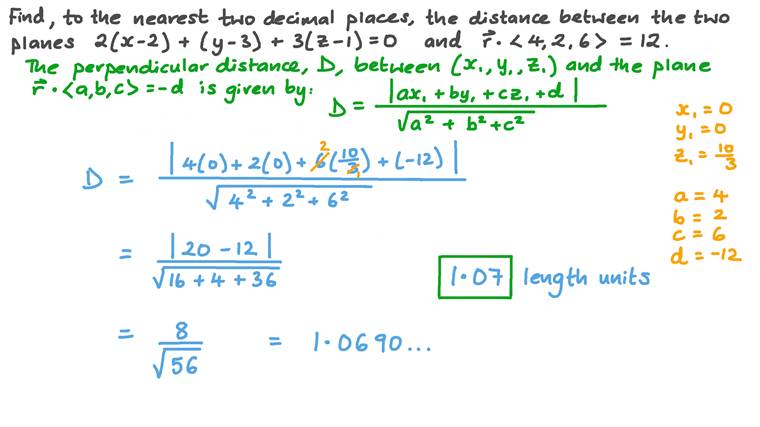 Find, to the nearest two decimal places, the distance between the two
planes 2(x-2) + (y-3) + 3(z-1) = 0 and r⃗ · <4, 2, 6> = 12.
The perpendicular distance, D, between (x₁, y₁, z₁) and the plane
r⃗ · <a, b, c> = -d is given by: D = |ax₁ + by₁ + cz₁ + d| / √(a² + b² + c²)
x₁ = 0
y₁ = 0
z₁ = 10/3
D = |4(0) + 2(0) + 6̸ 2(10/3̸ 1) + (-12)| / √(4² + 2² + 6²)
a = 4
b = 2
c = 6
d = -12
= |20 - 12| / √(16 + 4 + 36)
1.07 length units
= 8 / √56 = 1.0690...